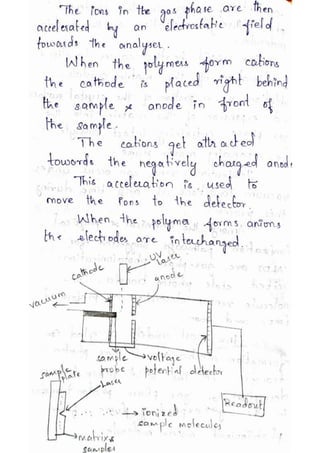 The ions in the gas phase are then
accelerated by an electrostatic field
towards the analyser.
When the polymers form cations
the cathode is placed right behind
the sample & anode in front of
the sample.
The cations get attracted
towards the negatively charged anode
This acceleration is used to
move the ions to the detector.
When the polymer forms anions
the electrodes are interchanged.
cathode
UV laser
anode
vacuum
sample probe
voltage potential
detector
sample plate
Laser
Readout
→ ionized
sample molecules
→ matrix &
samples